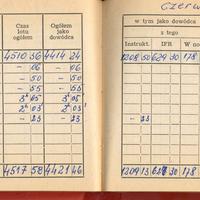 Czerw
Czas lotu ogółem
Ogółem jako dowódca
w tym jako dowódca
z tego
Instrukt.
IFR
W no
4510 36 4414 24 1208 50 629 30 178
- 06 - 06
- 50 - 50
- 55 - 55
3 05 3 05
2 03 2 03
- 23 - 23 - 23
4517 58 4421 46 1209 13 629 30 178